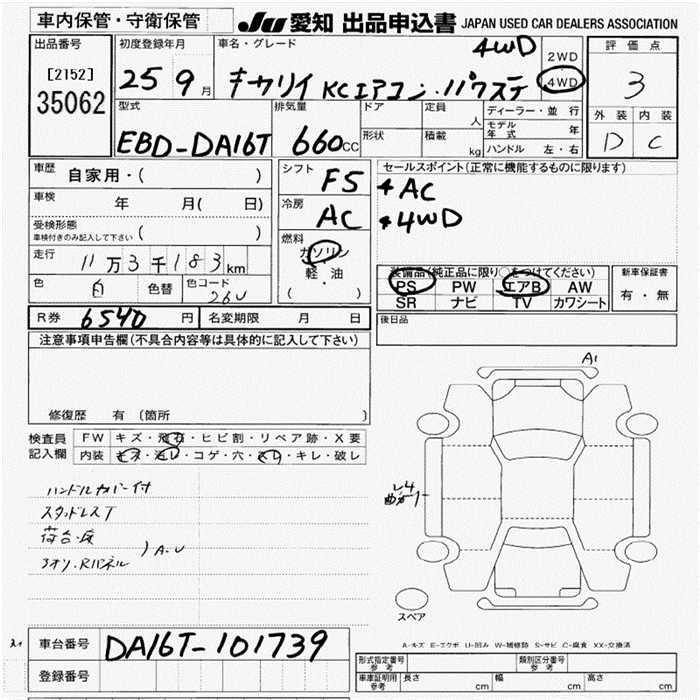 車内保管・守衛保管
JU 愛知 出品申込書 JAPAN USED CAR DEALERS ASSOCIATION
出品番号
[2152]
35062
初度登録年月
25 9月
車名・グレード
4WD
キャリイ KCエアコン・パワステ
2WD
4WD
評価点
3
外装 内装
D C
型式
EBD-DA16T
排気量
660cc
ドア
形状
定員 人
積載 kg
ディーラー・並行
モデル年式 年
ハンドル 左・右
車歴 自家用・( )
車検 年 月( 日)
受検形態
車検付きのみ記入して下さい ( )
走行 11万3千183km
色 白 色替 色コード 26U
シフト F5
冷房 AC
燃料 ガソリン
軽油
( ・ )
セールスポイント(正常に機能するものに限ります)
AC
4WD
装備品(純正品に限り○をつけてください)
PS PW エアB AW
SR ナビ TV カワシート
新車保証書
有・無
R券 6540円 名変期限 月 日
後日品
注意事項申告欄(不具合内容等は具体的に記入して下さい)
修復歴 有(箇所 )
検査員記入欄
FW キズ・飛石・ヒビ割・リペア跡・X要
内装 キズ・汚レ・コゲ・穴・スレ・キレ・破レ
ハンドルカバー付
スタッドレスT
荷台・灰
アオリ・Rパネル
) A.U
A1
L4
曲ガリ
スペア
A-キズ E-エクボ U-凹み W-補修跡 S-サビ C-腐食 XX-交換済
車台番号 DA16T-101739
登録番号
形式指定番号 参考
類別区分番号 参考
車庫証明用 参考 長さ cm 幅 cm 高さ cm